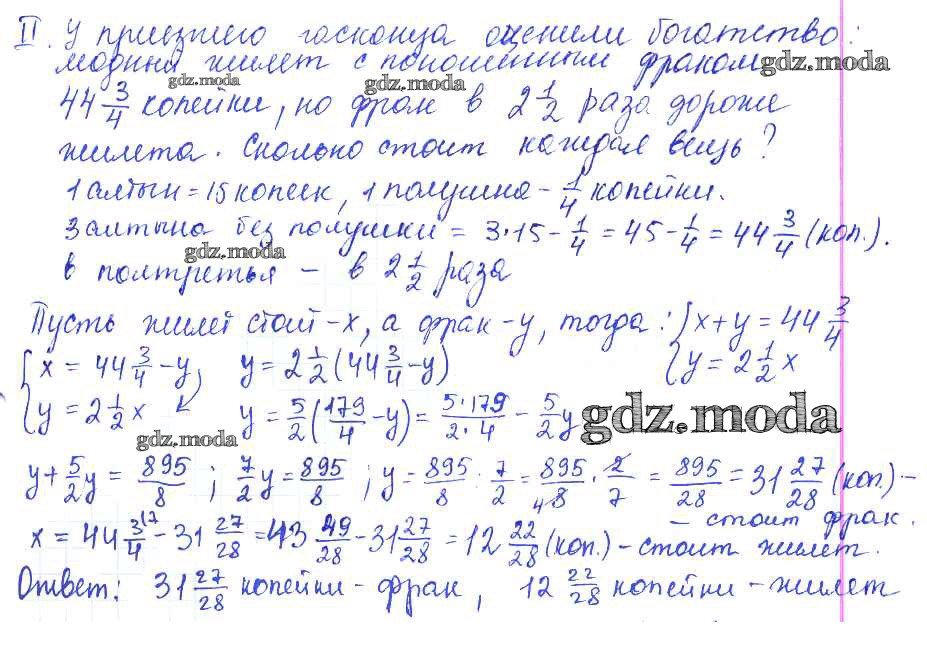 II. У приезжего гасконца оценили богатство:
модный жилет с поношенным фраком
gdz.moda gdz.moda gdz.moda
44 3/4 копейки, но фрак в 2 1/2 раза дороже
жилета. Сколько стоит каждая вещь?
1 алтын = 15 копеек, 1 полушка - 1/4 копейки.
3 алтына без полушки = 3·15 - 1/4 = 45 - 1/4 = 44 3/4 (коп.).
gdz.moda
в полтретья - в 2 1/2 раза
Пусть жилет стоит - x, а фрак - y, тогда: { x + y = 44 3/4
{ x = 44 3/4 - y, y = 2 1/2 (44 3/4 - y) { y = 2 1/2 x
{ y = 2 1/2 x ↙ y = 5/2 (179/4 - y) = 5·179/2·4 - 5/2 y
gdz.moda gdz.moda
y + 5/2 y = 895/8 ; 7/2 y = 895/8 ; y = 895/8 : 7/2 = 895/48 · 2/7 = 895/28 = 31 27/28 (коп.) -
- стоит фрак.
x = 44 3/4 17 - 31 27/28 = 43 49/28 - 31 27/28 = 12 22/28 (коп.) - стоит жилет.
Ответ: 31 27/28 копейки - фрак, 12 22/28 копейки - жилет